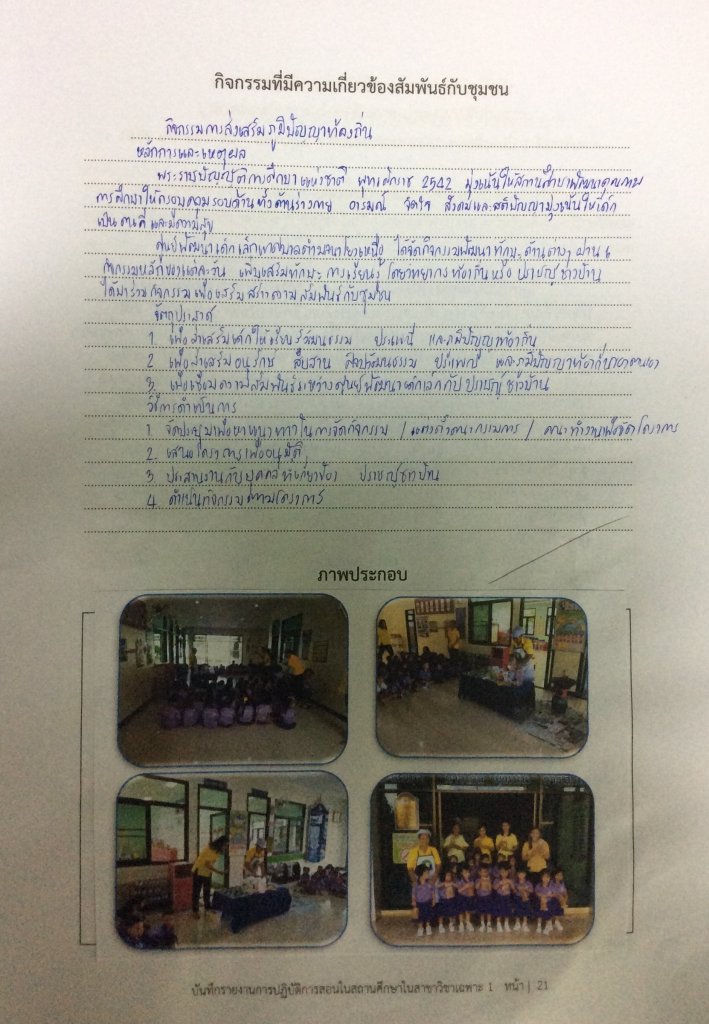 กิจกรรมที่มีความเกี่ยวข้องสัมพันธ์กับชุมชน
กิจกรรมการส่งเสริมภูมิปัญญาท้องถิ่น
หลักการและเหตุผล
พระราชบัญญัติการศึกษาแห่งชาติ พุทธศักราช 2542 มุ่งเน้นให้สถานศึกษาพัฒนาคุณภาพ
การศึกษาให้ครอบคลุมรอบด้าน ทั้งด้านร่างกาย อารมณ์ จิตใจ สังคมและสติปัญญามุ่งเน้นให้เด็ก
เป็น คนดี และมีความสุข
ศูนย์พัฒนาเด็กเล็กเทศบาลตำบลนาโยงเหนือ ได้จัดกิจกรรมพัฒนาทักษะด้านต่างๆ ผ่าน 6
กิจกรรมหลักของแต่ละวัน เพิ่มเสริมทักษะ การเรียนรู้ โดยวิทยากรท้องถิ่นหรือ ปราชญ์ชาวบ้าน
ได้มาร่วมกิจกรรมเพื่อเสริมสร้างความสัมพันธ์กับชุมชน
วัตถุประสงค์
1. เพื่อส่งเสริมเด็กให้เรียนรู้วัฒนธรรม ประเพณี และภูมิปัญญาท้องถิ่น
2 เพื่อส่งเสริมอนุรักษ์ สืบสาน ศิลปวัฒนธรรม ประเพณี และภูมิปัญญาท้องถิ่นของตนเอง
3. เพื่อเชื่อมความสัมพันธ์ระหว่างศูนย์พัฒนาเด็กเล็กกับปราชญ์ชาวบ้าน
วิธีการดำเนินการ
1 จัดประชุมเพื่อหาแนวทางในการจัดกิจกรรม / แต่งตั้งคณะกรรมการ / คณะทำงานเพื่อจัดโครงการ
2. เสนอโครงการเพื่ออนุมัติ
3 ประสานงานกับบุคคลที่เกี่ยวข้อง ปราชญ์ชาวบ้าน
4. ดำเนินกิจกรรมตามโครงการ
ภาพประกอบ
บันทึกรายงานการปฏิบัติการสอนในสถานศึกษาในสาขาวิชาเฉพาะ 1 หน้า | 21